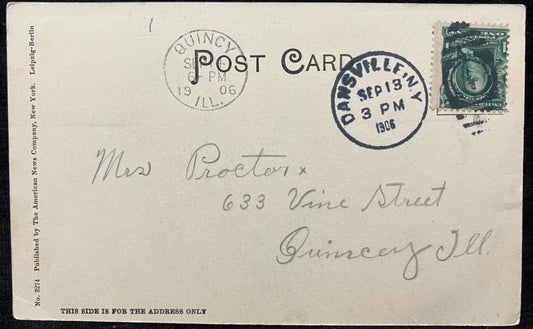 1
QUINCY
SEP
6- PM
19 06
ILL.
POST CARD
DANSVILLE, N.Y.
SEP 13
3 PM
1906
Mrs Proctor
633 Vine Street
Quinscey Ill.
THIS SIDE IS FOR THE ADDRESS ONLY
No. 3274 Published by The American News Company, New York. Leipzig-Berlin